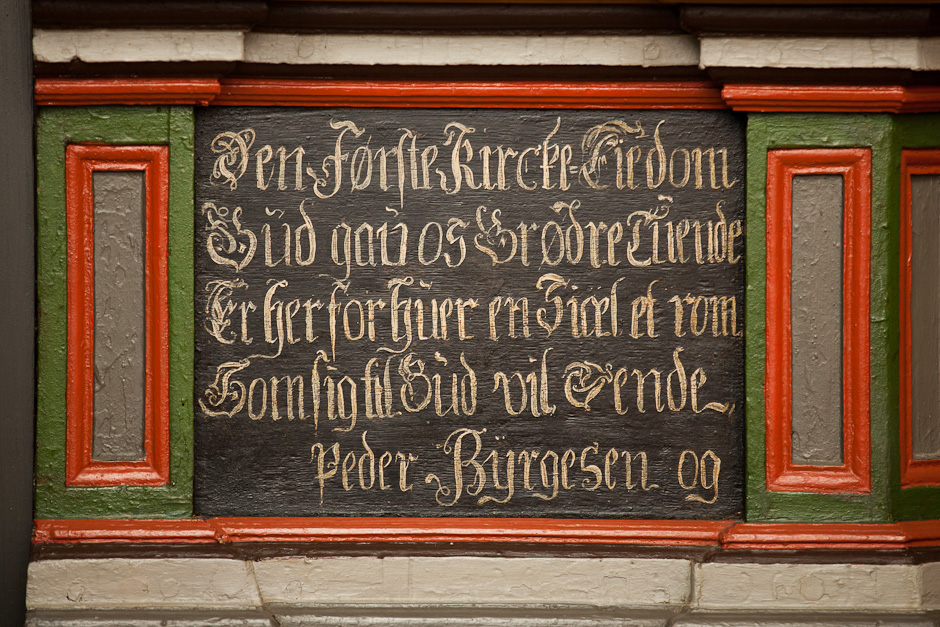 Den Første Kircke-Eiedom
Gud gaü os Brødre Tiiende
Er her for hüer en Siæl et rom
Som sig til Gud vil Vende
Peder Büÿrgesen og